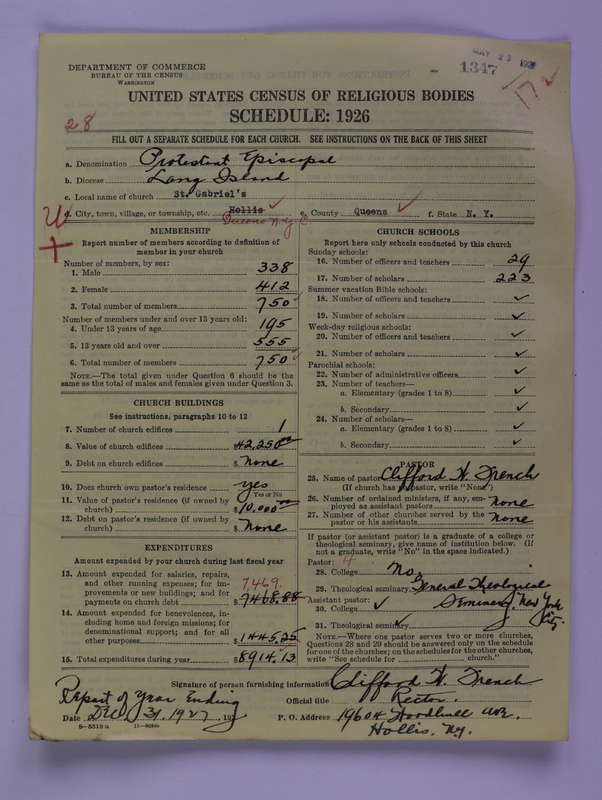 DEPARTMENT OF COMMERCE
BUREAU OF THE CENSUS
WASHINGTON
MAY 23 1928
1347
172
UNITED STATES CENSUS OF RELIGIOUS BODIES
SCHEDULE: 1926
28
FILL OUT A SEPARATE SCHEDULE FOR EACH CHURCH. SEE INSTRUCTIONS ON THE BACK OF THIS SHEET
a. Denomination Protestant Episcopal
b. Diocese Long Island
c. Local name of church St. Gabriel's
d. City, town, village, or township, etc. Hollis e. County Queens f. State N. Y.
Queens N.Y.C
MEMBERSHIP
Report number of members according to definition of member in your church
Number of members, by sex:
1. Male 338
2. Female 412
3. Total number of members 750
Number of members under and over 13 years old:
4. Under 13 years of age 195
5. 13 years old and over 555
6. Total number of members 750
NOTE.—The total given under Question 6 should be the
same as the total of males and females given under Question 3.
CHURCH BUILDINGS
See instructions, paragraphs 10 to 12
7. Number of church edifices 1
8. Value of church edifices $42,250.00
9. Debt on church edifices $ None
10. Does church own pastor's residence yes
Yes or No
11. Value of pastor's residence (if owned by
church) $10,000.00
12. Debt on pastor's residence (if owned by
church) $ None
EXPENDITURES
Amount expended by your church during last fiscal year
13. Amount expended for salaries, repairs,
and other running expenses; for im-
provements or new buildings; and for
payments on church debt $ 7468.88
7,469.
14. Amount expended for benevolences, in-
cluding home and foreign missions; for
denominational support; and for all
other purposes $1445.25
15. Total expenditures during year $8914.13
CHURCH SCHOOLS
Report here only schools conducted by this church
Sunday schools:
16. Number of officers and teachers 29
17. Number of scholars 223
Summer vacation Bible schools:
18. Number of officers and teachers ✓
19. Number of scholars ✓
Week-day religious schools:
20. Number of officers and teachers ✓
21. Number of scholars ✓
Parochial schools:
22. Number of administrative officers ✓
23. Number of teachers—
a. Elementary (grades 1 to 8) ✓
b. Secondary ✓
24. Number of scholars—
a. Elementary (grades 1 to 8) ✓
b. Secondary ✓
PASTOR
25. Name of pastor Clifford W. French
(If church has no pastor, write "None")
26. Number of ordained ministers, if any, em-
ployed as assistant pastors None
27. Number of other churches served by the
pastor or his assistants None
If pastor (or assistant pastor) is a graduate of a college or
theological seminary, give name of institution below. (If
not a graduate, write "No" in the space indicated.)
Pastor: 4
28. College No.
29. Theological seminary General Theological
Assistant pastor: Seminary, New York
30. College ✓ City
31. Theological seminary ✓
NOTE.—Where one pastor serves two or more churches,
Questions 28 and 29 should be answered only on the schedule
for one of the churches; on the schedules for the other churches,
write "See schedule for church."
Signature of person furnishing information Clifford W. French
Report of Year Ending
Official title Rector.
Date Dec 31, 1927, 192
P. O. Address 19604 Woodhull Ave.
Hollis, N.Y.
8-5513a 11-9034a